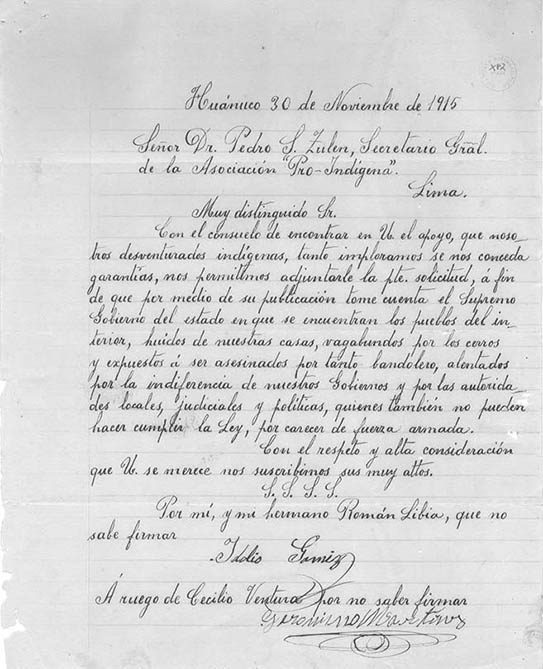 Huánuco 30 de Noviembre de 1915
Señor Dr. Pedro S. Zulen, Secretario Grãl.
de la Asociación "Pro-Indígena".
Lima.
Muy distinguido Sr.
Con el consuelo de encontrar en U. el apoyo, que noso-
tros desventurados indígenas, tanto imploramos se nos conceda
garantías, nos permitimos adjuntarle la pte. solicitud, á fin
de que por medio de su publicación tome cuenta el Supremo
Gobierno del estado en que se encuentran los pueblos del in-
terior, huidos de nuestras casas, vagabundos por los cerros
y expuestos á ser asesinados por tanto bandolero, alentados
por la indiferencia de nuestros Gobiernos y por las autorida-
des locales, judiciales y políticas, quienes también no pueden
hacer cumplir la Ley, por carecer de fuerza armada.
Con el respeto y alta consideración
que U. se merece nos suscribimos sus muy attos.
S. S. S. S.
Por mí, y mi hermano Román Libia, que no
sabe firmar
Á ruego de Cecilio Ventura por no saber firmar